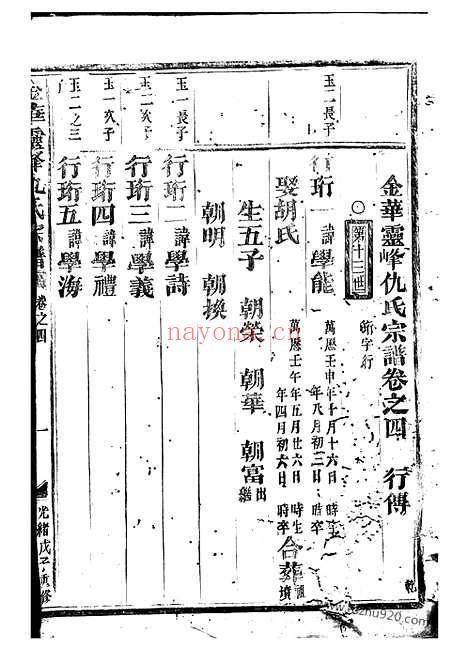 金華靈峰仇氏宗譜卷之四 行傳
第十三世 珩字行
玉二長子
行珩一 諱學能
萬歷壬申年十月十六日 時生
年八月初三日 時卒
娶胡氏
萬歷壬午年五月廿六日 時生
年四月初六日 時卒
合葬 墳
生五子 朝榮 朝華 朝富 出繼
朝明 朝換
玉一長子
行珩二 諱學詩
玉二次子
行珩三 諱學義
玉一次子
行珩四 諱學禮
玉二之三
行珩五 諱學海
金華靈峰仇氏宗譜 卷之四
一
光緒戊子重修
乾
nayona.cn
www.zhu920.com